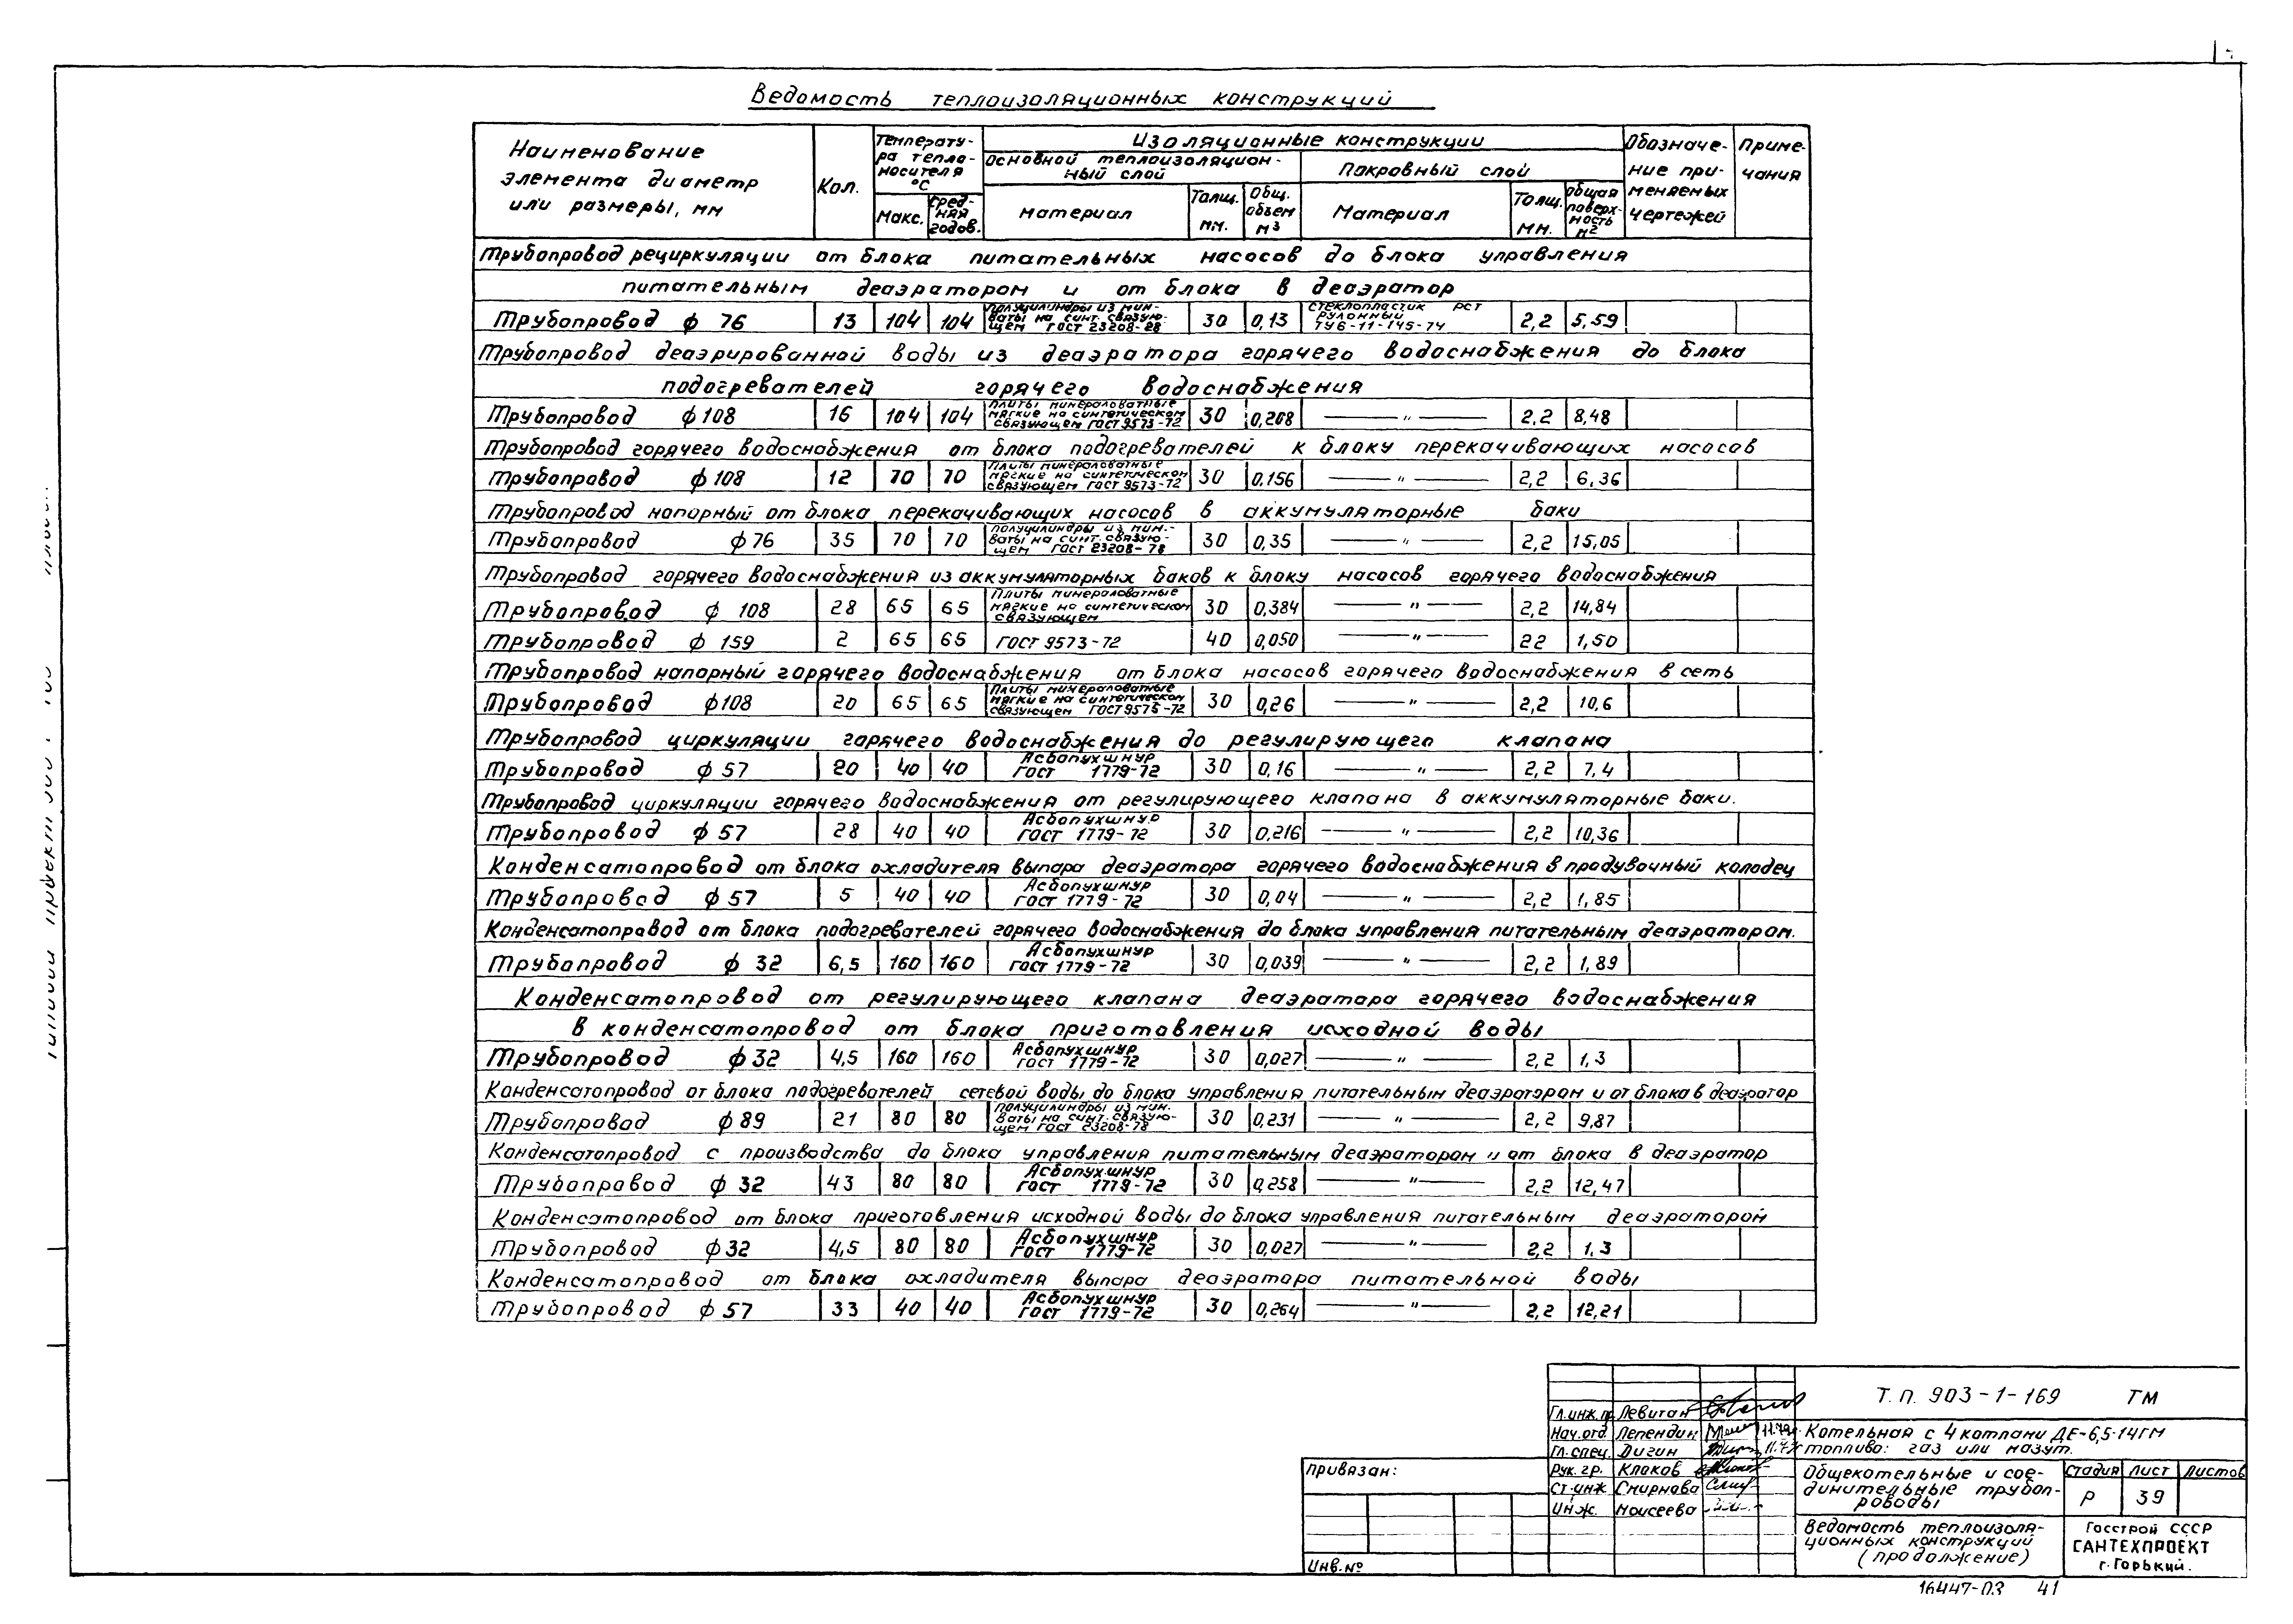 Ведомость теплоизоляционных конструкций
Наименование элемента диаметр или размеры, мм
Кол.
Температура теплоносителя °С
Макс.
Средняя годов.
Изоляционные конструкции
Основной теплоизоляционный слой
Покровный слой
Материал
Толщ. мм.
Общ. объем м3
Материал
Толщ. мм.
общая поверхность м2
Обозначение применяемых чертежей
Примечания
Трубопровод рециркуляции от блока питательных насосов до блока управления
питательным деаэратором и от блока в деаэратор
Трубопровод ф 76 13 104 104 Полуцилиндры из мин-ваты на синт. связующем ГОСТ 23208-88 30 0,13 стеклопластик рст рулонный ТУ6-11-145-74 2,2 5,59
Трубопровод деаэрированной воды из деаэратора горячего водоснабжения до блока
подогревателей горячего водоснабжения
Трубопровод ф108 16 104 104 плиты минераловатные мягкие на синтетическом связующем ГОСТ 9573-72 30 0,208 —„— 2,2 8,48
Трубопровод горячего водоснабжения от блока подогревателей к блоку перекачивающих насосов
Трубопровод ф108 12 70 70 плиты минераловатные мягкие на синтетическом связующем ГОСТ 9573-72 30 0,156 —„— 2,2 6,36
Трубопровод напорный от блока перекачивающих насосов в аккумуляторные баки
Трубопровод ф76 35 70 70 полуцилиндры из мин.-ваты на синт. связующем ГОСТ 23208-78 30 0,35 —„— 2,2 15,05
Трубопровод горячего водоснабжения из аккумуляторных баков к блоку насосов горячего водоснабжения
Трубопровод ф 108 28 65 65 Плиты минераловатные мягкие на синтетическом связующем 30 0,384 —„— 2,2 14,84
Трубопровод ф 159 2 65 65 ГОСТ 9573-72 40 0,050 —„— 22 1,50
Трубопровод напорный горячего водоснабжения от блока насосов горячего водоснабжения в сеть
Трубопровод ф108 20 65 65 Плиты минераловатные мягкие на синтетическом связующем ГОСТ 9573-72 30 0,26 —„— 2,2 10,6
Трубопровод циркуляции горячего водоснабжения до регулирующего клапана
Трубопровод ф 57 20 40 40 Асбопухшнур ГОСТ 1779-72 30 0,16 —„— 2,2 7,4
Трубопровод циркуляции горячего водоснабжения от регулирующего клапана в аккумуляторные баки.
Трубопровод ф 57 28 40 40 Асбопухшнур ГОСТ 1779-72 30 0,216 —„— 2,2 10,36
Конденсатопровод от блока охладителя выпара деаэратора горячего водоснабжения в продувочный колодец
Трубопровод ф 57 5 40 40 Асбопухшнур ГОСТ 1779-72 30 0,04 —„— 2,2 1,85
Конденсатопровод от блока подогревателей горячего водоснабжения до блока управления питательным деаэратором.
Трубопровод ф 32 6,5 160 160 Асбопухшнур ГОСТ 1779-72 30 0,039 —„— 2,2 1,89
Конденсатопровод от регулирующего клапана деаэратора горячего водоснабжения
в конденсатопровод от блока приготовления исходной воды
Трубопровод ф32 4,5 160 160 Асбопухшнур ГОСТ 1779-72 30 0,027 —„— 2,2 1,3
Конденсатопровод от блока подогревателей сетевой воды до блока управления питательным деаэратором и от блока в деаэратор
Трубопровод ф89 21 80 80 полуцилиндры из мин. ваты на синт. связующем ГОСТ 23208-78 30 0,231 —„— 2,2 9,87
Конденсатопровод с производства до блока управления питательным деаэратором и от блока в деаэратор
Трубопровод ф 32 43 80 80 Асбопухшнур ГОСТ 1779-72 30 0,258 —„— 2,2 12,47
Конденсатопровод от блока приготовления исходной воды до блока управления питательным деаэраторой
Трубопровод ф32 4,5 80 80 Асбопухшнур ГОСТ 1779-72 30 0,027 —„— 2,2 1,3
Конденсатопровод от блока охладителя выпара деаэратора питательной воды
Трубопровод ф 57 33 40 40 Асбопухшнур ГОСТ 1779-72 30 0,264 —„— 2,2 12,21
Т.П. 903-1-169 ТМ
Гл.инж.пр. Левитан
Нач.отд. Лепендин
Гл.спец. Дигин
Рук.гр. Клоков
Ст.инж Смирнова
Инж. Моисеева
Котельная с 4 котлани ДЕ-6,5-14ГМ
топливо: газ или мазут.
Общекотельные и сое-
динительные трубоп-
роводы
Стадия Лист Листов
Р 39
Ведомость теплоизоля-
ционных конструкций
(продолжение)
Госстрой СССР
САНТЕХПРОЕКТ
г. Горький.
Привязан:
Инв.№
16447-03 41